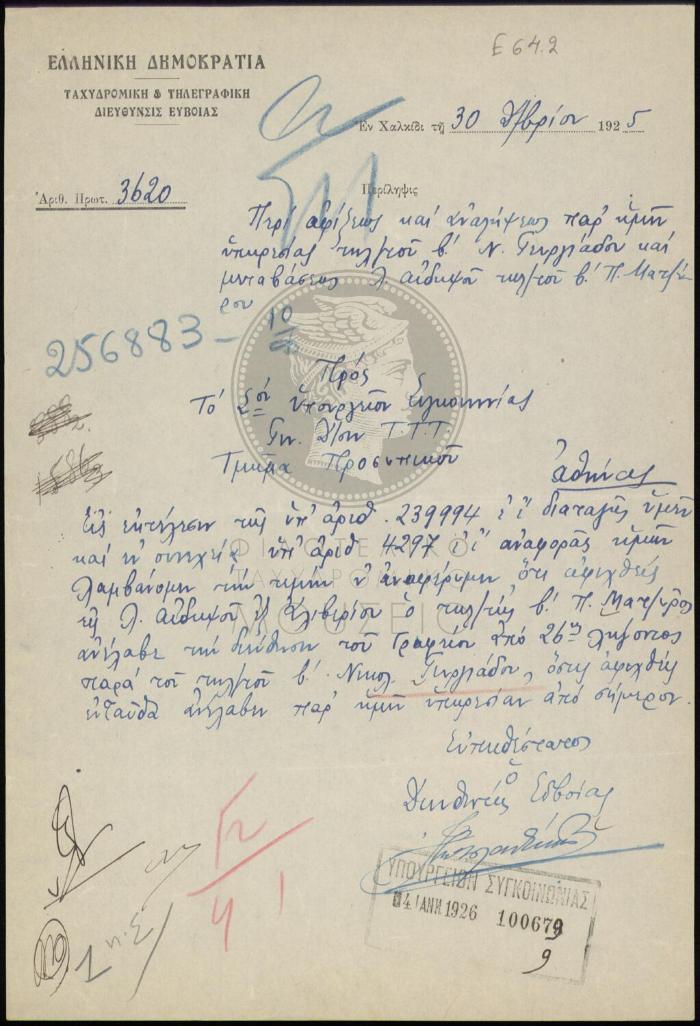 Ε 64.2
ΕΛΛΗΝΙΚΗ ΔΗΜΟΚΡΑΤΙΑ
ΤΑΧΥΔΡΟΜΙΚΗ & ΤΗΛΕΓΡΑΦΙΚΗ
ΔΙΕΥΘΥΝΣΙΣ ΕΥΒΟΙΑΣ
Ἐν Χαλκίδι τῇ 30 Δ/βρίου 1925
Ἀριθ. Πρωτ. 3620
Περίληψις
Περί ἀφίξεως καί ἀναλήψεως παρ' ἡμῖν
ὑπηρεσίας τηλ/τοῦ β' Ν. Γεωργιάδου καί
μεταβάσεως Λ. Αἰδηψοῦ τηλ/τοῦ β' Π. Ματζώ-
ρου
256883 - 10
Πρός
Τό Σόν Ὑπουργεῖον Συγκοινωνίας
Γεν. Δ/σιν Τ.Τ.Τ.
Τμῆμα Προσωπικοῦ
Ἀθήνας
Εἰς ἐκτέλεσιν τῆς ὑπ' ἀριθ. 239994 ἐ.ἔ διαταγῆς ὑμῶν
καί ἐν συνεχείᾳ ὑπ' ἀριθ 4297 ἐ.ἔ ἀναφορᾶς ἡμῶν
λαμβάνομεν τήν τιμήν ν' ἀναφέρωμεν ὅτι ἀφιχθείς
εἰς Λ. Αἰδηψοῦ ἐξ Ἀλιβερίου ὁ τηλ/τής β' Π. Ματζῶρος
ἀνέλαβε τήν διεύθυνσιν τοῦ Γραφείου ἀπό 26ης λήγοντος
παρά τοῦ τηλ/τοῦ β' Νικολ. Γεωργιάδου, ὅστις ἀφιχθείς
ἐνταῦθα ἀνέλαβεν παρ' ἡμῖν ὑπηρεσίαν ἀπό σήμερον.
Εὐπειθέστατος
ὁ
Διευθυντής Εὐβοίας
ΥΠΟΥΡΓΕΙΟΝ ΣΥΓΚΟΙΝΩΝΙΑΣ
04 ΙΑΝ 1926 100679
9
ΦΙΛΟΤΕΛΙΚΟ
ΤΑΧΥΔΡΟΜΙΚΟ
ΜΟΥΣΕΙΟ